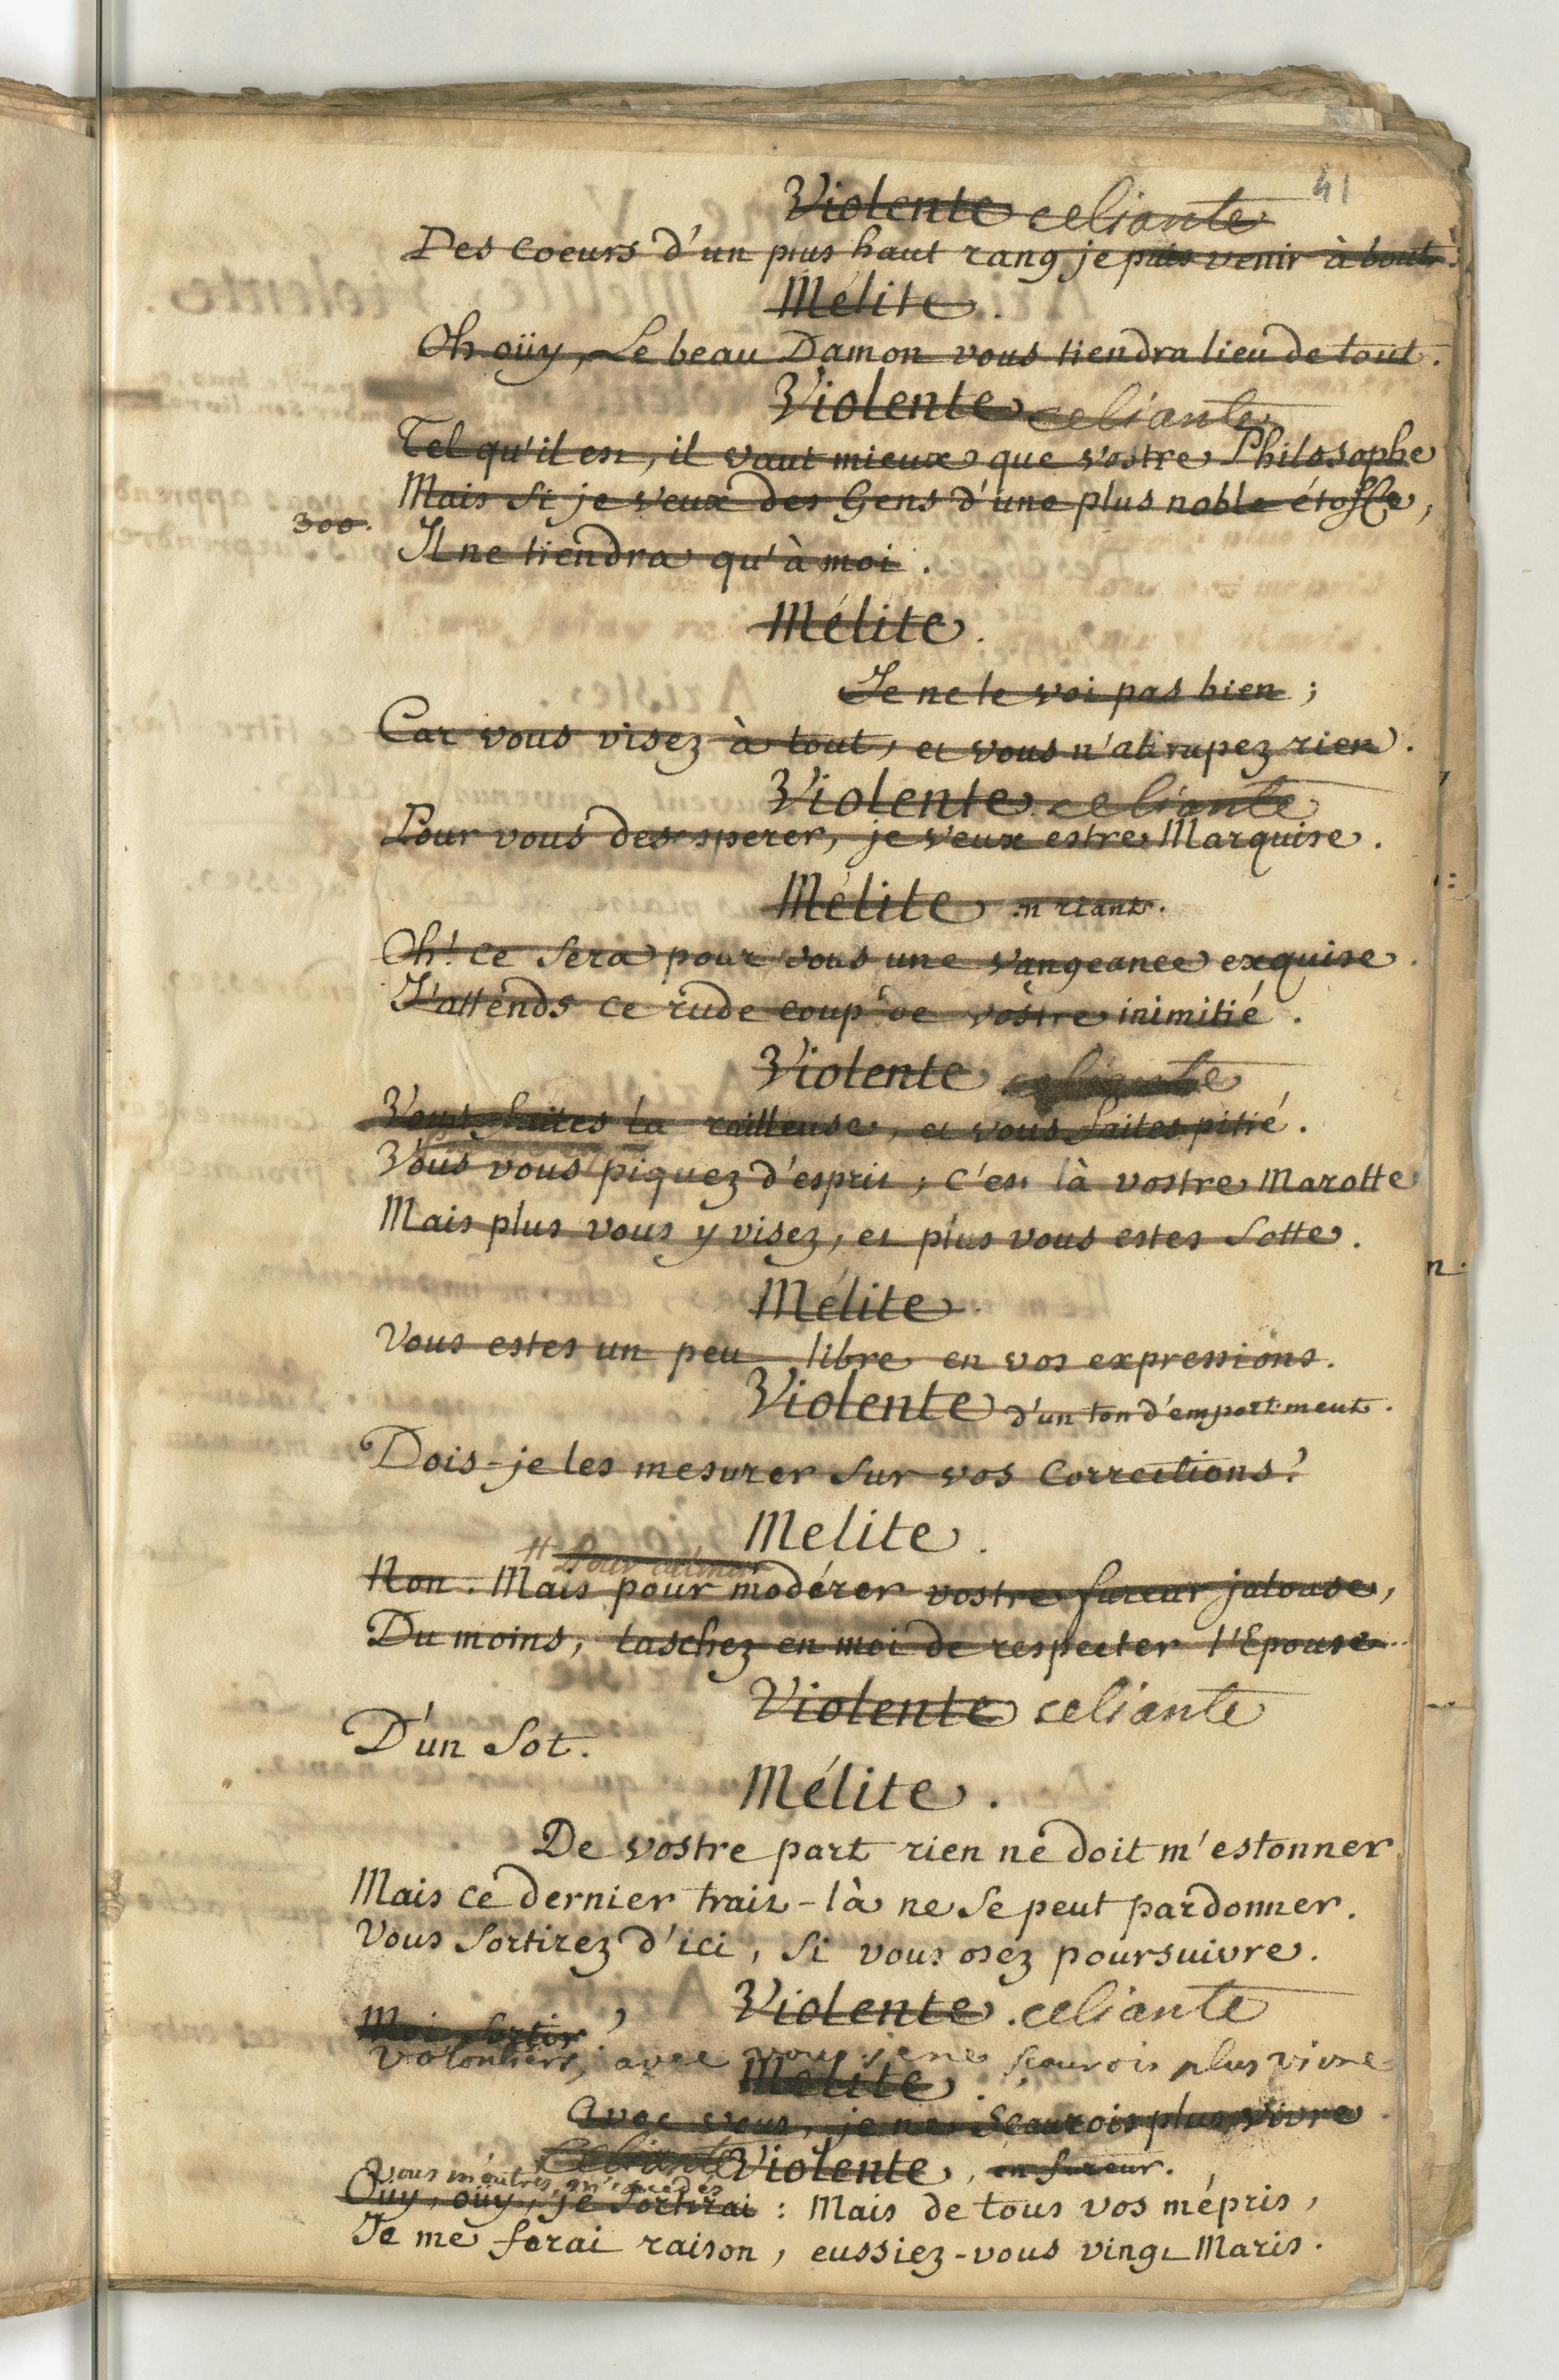 41
Violente celiante
Des Coeurs d'un plus haut rang je puis venir à bout.
Mélite.
Oh oüy, Le beau Damon vous tiendra lieu de tout.
Violente celiante
Tel qu'il est, il vaut mieux que vostre Philosophe
Mais si je veux des Gens d'une plus noble étoffe,
300. Il ne tiendra qu'à moi.
Mélite.
Je ne le voi pas bien ;
Car vous visez à tout, et vous n'attrapez rien.
Violente celiante
Pour vous desesperer, je veux estre Marquise.
Mélite en riant.
Oh! Ce sera pour vous une vangeance exquise.
J'attends ce rude coup de vostre inimitié.
Violente celiante
Vous faites la railleuse, et vous faites pitié.
Vous vous piquez d'esprit ; C'est là vostre Marotte
Mais plus vous y visez, et plus vous estes Sotte.
Mélite.
Vous estes un peu libre en vos expressions.
Violente d'un ton d'emportement.
Dois-je les mesurer sur vos Corrections?
Melite.
# Pour calmer
Non. Mais pour modérer vostre fureur jalouse,
Du moins, taschez en moi de respecter l'Epouse...
Violente celiante
D'un Sot.
Mélite.
De vostre part rien ne doit m'estonner
Mais ce dernier trait-là ne se peut pardonner.
Vous Sortirez d'ici, si vous osez poursuivre.
Violente. celiante
Moi sortir?
volontiers, avec vous je ne sçaurois plus vivre
Mélite.
Avec vous, je ne sçaurois plus vivre.
Celiante Violente, en fureur.
vous m'outrés, m'excedés
Oüy, oüy, je Sortirai : Mais de tous vos mépris,
Je me ferai raison, eussiez-vous vingt Maris.